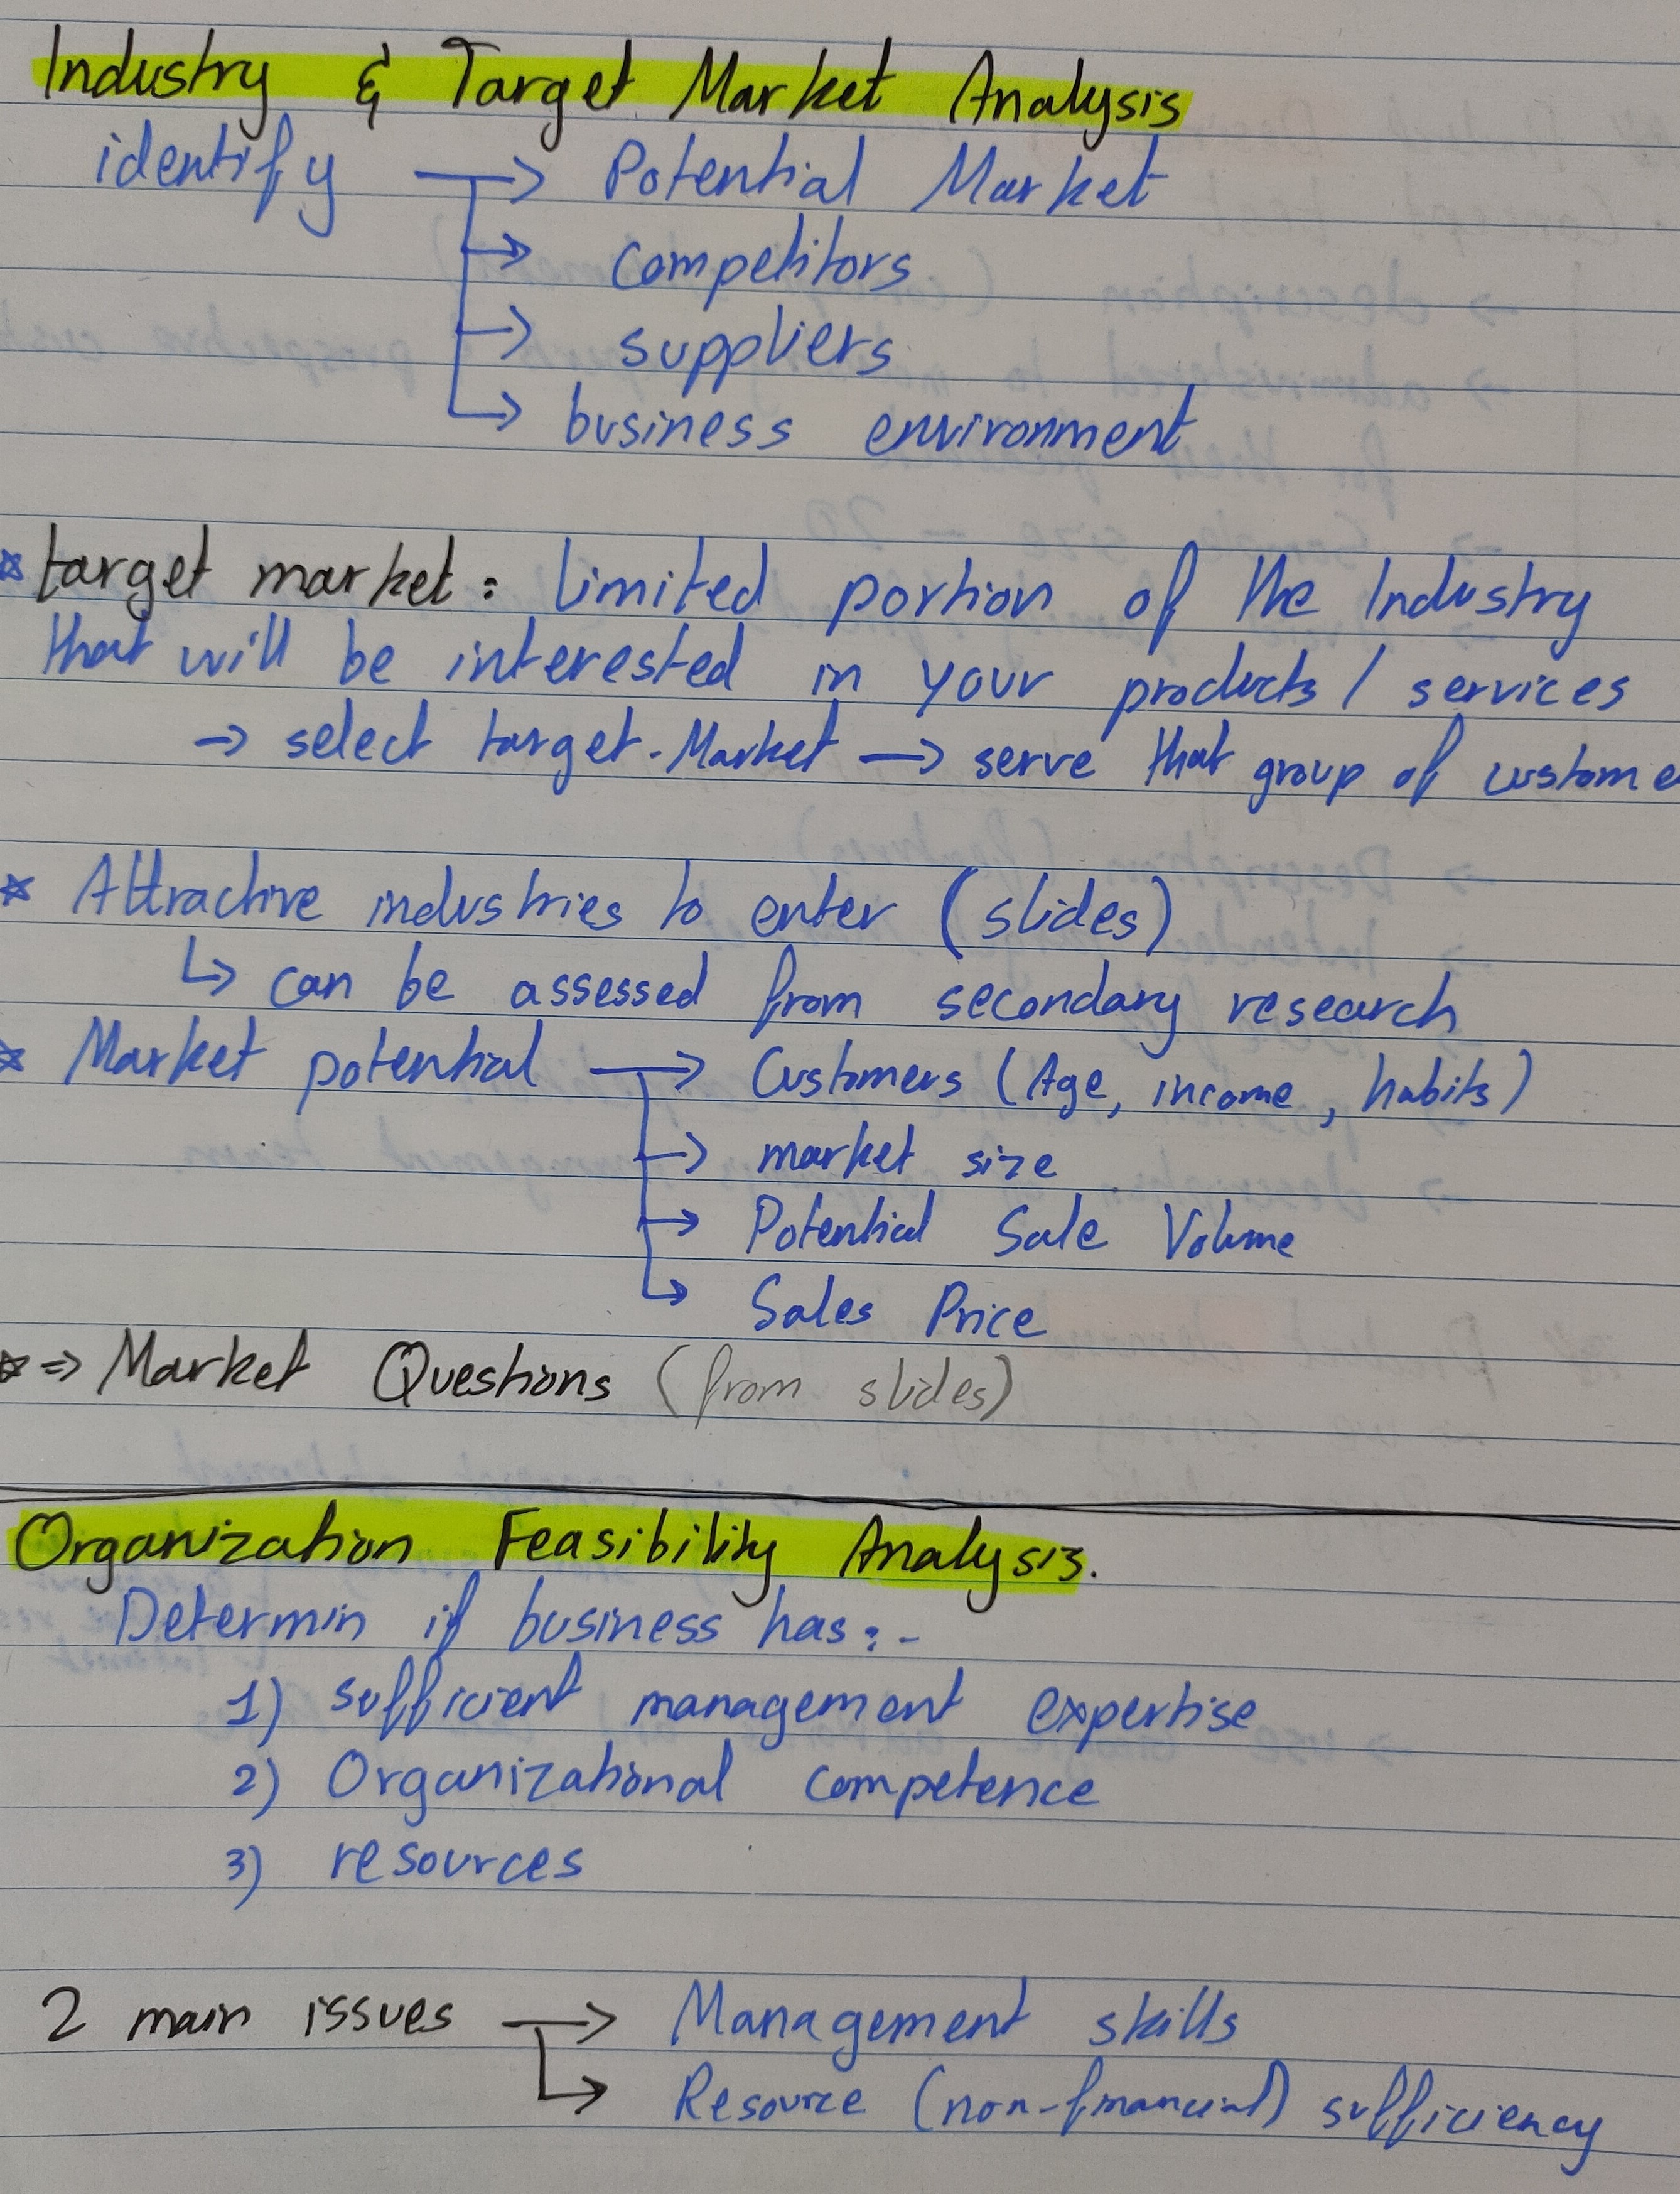 Industry & Target Market Analysis
identify → Potential Market
→ competitors
→ suppliers
→ business environment
* target market: limited portion of the Industry
that will be interested in your products / services
→ select target-Market → serve that group of custome
* Attractive industries to enter (slides)
↳ can be assessed from secondary research
* Market potential → Customers (Age, income, habits)
→ market size
→ Potential Sale Volume
→ Sales Price
* ⇒ Market Questions (from slides)
Organization Feasibility Analysis.
Determin if business has:-
1) sufficient management expertise
2) Organizational competence
3) resources
2 main issues → Management skills
→ Resource (non-financial) sufficiency